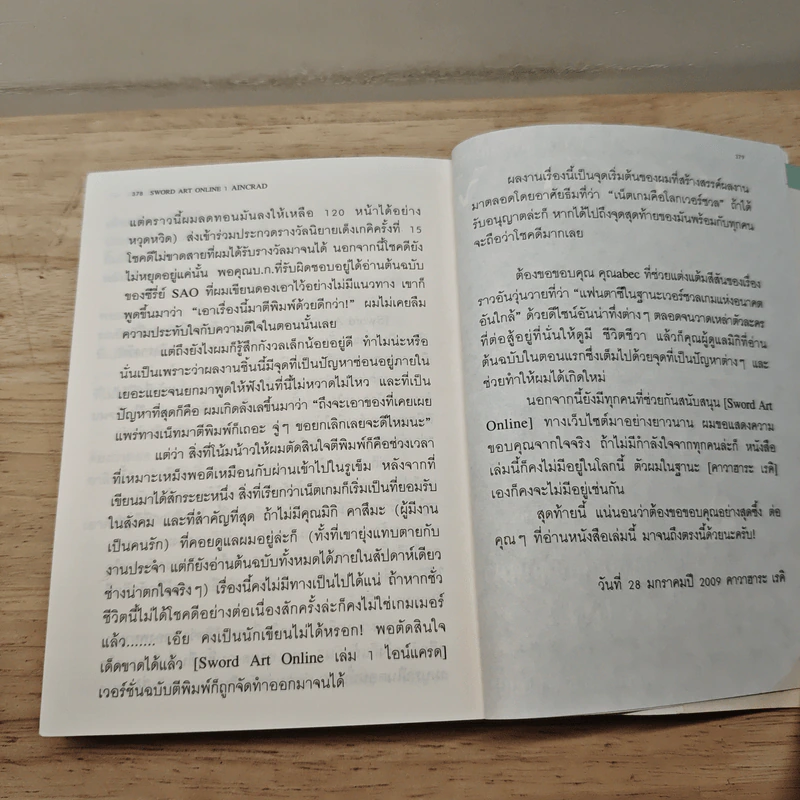 378 SWORD ART ONLINE 1 AINCRAD
แต่คราวนี้ผมลดทอนมันลงให้เหลือ 120 หน้าได้อย่าง
หวุดหวิด) ส่งเข้าร่วมประกวดรางวัลนิยายเด็งเกคิครั้งที่ 15
โชคดีไม่ขาดสายที่ผมได้รับรางวัลมาจนได้ นอกจากนี้โชคดียัง
ไม่หยุดอยู่แค่นั้น พอคุณบ.ก.ที่รับผิดชอบอยู่ได้อ่านต้นฉบับ
ของซีรีย์ SAO ที่ผมเขียนดองเอาไว้อย่างไม่มีแนวทาง เขาก็
พูดขึ้นมาว่า “เอาเรื่องนี้มาตีพิมพ์ด้วยดีกว่า!” ผมไม่เคยลืม
ความประทับใจกับความดีใจในตอนนั้นเลย
แต่ถึงยังไงผมก็รู้สึกกังวลเล็กน้อยอยู่ดี ทำไมน่ะหรือ
นั่นเป็นเพราะว่าผลงานชิ้นนี้มีจุดที่เป็นปัญหาซ่อนอยู่ภายใน
เยอะแยะจนยกมาพูดให้ฟังในที่นี้ไม่หวาดไม่ไหว และที่เป็น
ปัญหาที่สุดก็คือ ผมเกิดลังเลขึ้นมาว่า “ถึงจะเอาของที่เคยเผย
แพร่ทางเน็ทมาตีพิมพ์ก็เถอะ จู่ๆ ขอยกเลิกเลยจะดีไหมนะ”
แต่ว่า สิ่งที่โน้มน้าวให้ผมตัดสินใจตีพิมพ์ก็คือช่วงเวลา
ที่เหมาะเหม็งพอดีเหมือนกับผ่านเข้าไปในรูเข็ม หลังจากที่
เขียนมาได้สักระยะหนึ่ง สิ่งที่เรียกว่าเน็ตเกมก็เริ่มเป็นที่ยอมรับ
ในสังคม และที่สำคัญที่สุด ถ้าไม่มีคุณมิกิ คาสึมะ (ผู้มีงาน
เป็นคนรัก) ที่คอยดูแลผมอยู่ล่ะก็ (ทั้งที่เขายุ่งแทบตายกับ
งานประจำ แต่ก็ยังอ่านต้นฉบับทั้งหมดได้ภายในสัปดาห์เดียว
ช่างน่าตกใจจริงๆ) เรื่องนี้คงไม่มีทางเป็นไปได้แน่ ถ้าหากชั่ว
ชีวิตนี้ไม่ได้โชคดีอย่างต่อเนื่องสักครั้งล่ะก็คงไม่ใช่เกมเมอร์
แล้ว....... เอ๊ย คงเป็นนักเขียนไม่ได้หรอก! พอตัดสินใจ
เด็ดขาดได้แล้ว [Sword Art Online เล่ม 1 ไอน์แครด]
เวอร์ชั่นฉบับตีพิมพ์ก็ถูกจัดทำออกมาจนได้
ผลงานเรื่องนี้เป็นจุดเริ่มต้นของผมที่สร้างสรรค์ผลงาน
มาตลอดโดยอาศัยธีมที่ว่า “เน็ตเกมคือโลกเวอร์ชวล” ถ้าได้
รับอนุญาตล่ะก็ หากได้ไปถึงจุดสุดท้ายของมันพร้อมกับทุกคน
จะถือว่าโชคดีมากเลย
ต้องขอขอบคุณ คุณabec ที่ช่วยแต่งแต้มสีสันของเรื่อง
ราวอันวุ่นวายที่ว่า “แฟนตาซีในฐานะเวอร์ชวลเกมแห่งอนาคต
อันใกล้” ด้วยดีไซน์อันน่าทึ่งต่างๆ ตลอดจนวาดเหล่าตัวละคร
ที่ต่อสู้อยู่ที่นั่นให้ดูมี ชีวิตชีวา แล้วก็คุณผู้ดูแลมิกิที่อ่าน
ต้นฉบับในตอนแรกซึ่งเต็มไปด้วยจุดที่เป็นปัญหาต่างๆ และ
ช่วยทำให้ผมได้เกิดใหม่
นอกจากนี้ยังมีทุกคนที่ช่วยกันสนับสนุน [Sword Art
Online] ทางเว็บไซต์มาอย่างยาวนาน ผมขอแสดงความ
ขอบคุณจากใจจริง ถ้าไม่มีกำลังใจจากทุกคนล่ะก็ หนังสือ
เล่มนี้ก็คงไม่มีอยู่ในโลกนี้ ตัวผมในฐานะ [คาวาฮาระ เรคิ]
เองก็คงจะไม่มีอยู่เช่นกัน
สุดท้ายนี้ แน่นอนว่าต้องขอขอบคุณอย่างสุดซึ้ง ต่อ
คุณๆ ที่อ่านหนังสือเล่มนี้ มาจนถึงตรงนี้ด้วยนะครับ!
วันที่ 28 มกราคมปี 2009 คาวาฮาระ เรคิ